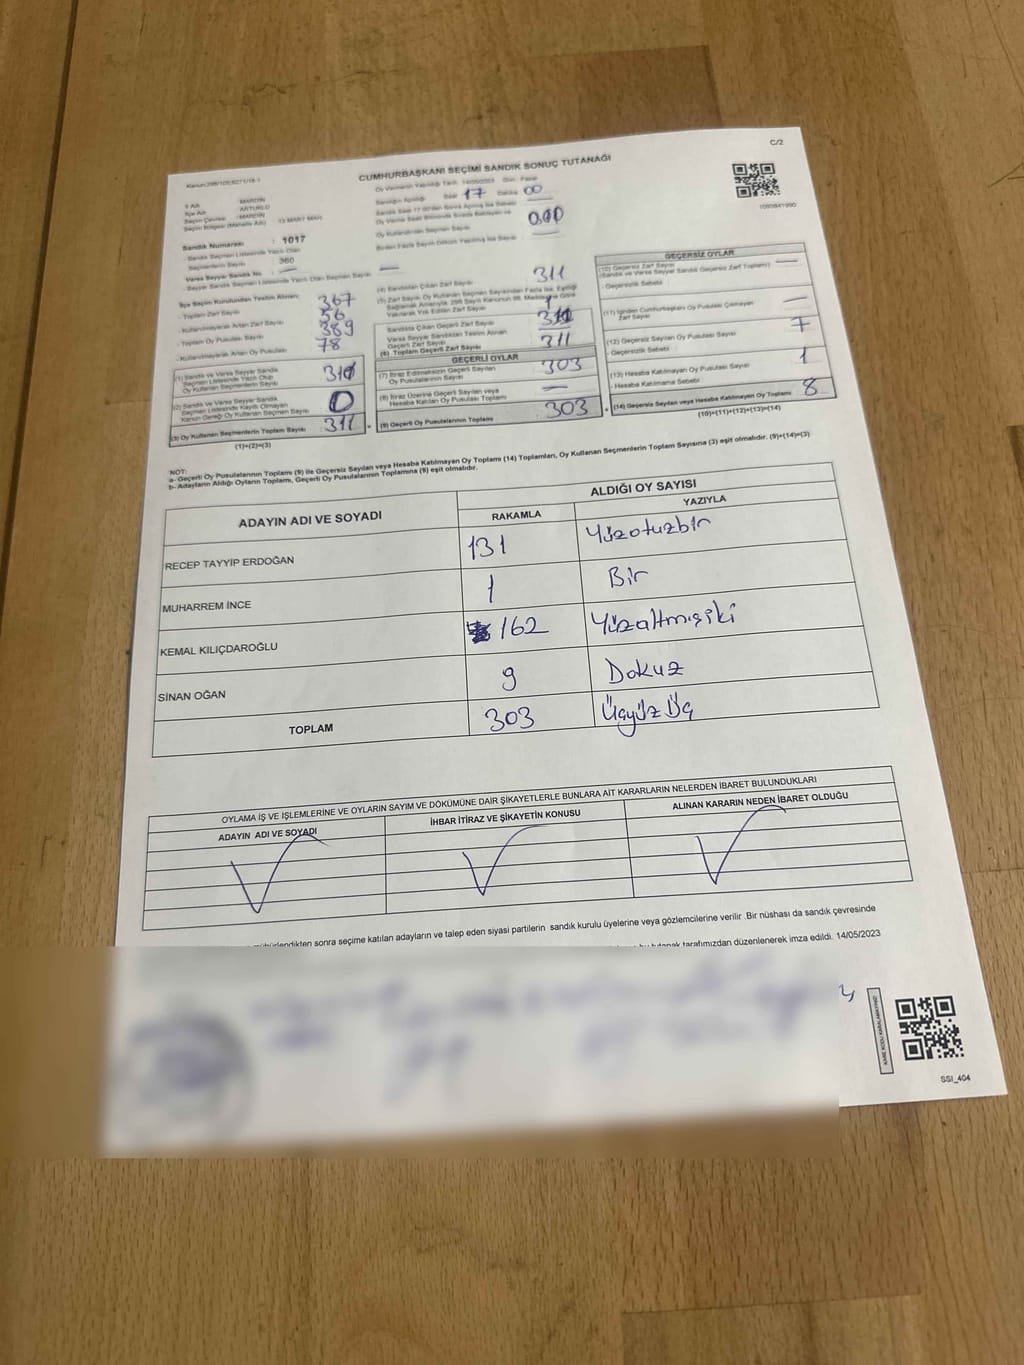 C/2
CUMHURBAŞKANI SEÇİMİ SANDIK SONUÇ TUTANAĞI
Oy Vermenin Yapıldığı Tarih 14/05/2023 Gün Pazar
Saat 17 Dakika 00
İl Adı : MARDİN
İlçe Adı : ARTUKLU
Seçim Çevresi : MARDİN
Seçim Bölgesi (Mahalle Adı) : 13 MART MAH
Sandık Numarası : 1017
- Sandık Seçmen Listesinde Yazılı Olan
Seçmenlerin Sayısı 360
Varsa Seyyar Sandık No
- Seyyar Sandık Seçmen Listesinde Yazılı Olan Seçmen Sayısı
İlçe Seçim Kurulundan Teslim Alınan;
- Toplam Zarf Sayısı 367
- Kullanılmayarak Artan Zarf Sayısı 56
- Toplam Oy Pusulası Sayısı 389
- Kullanılmayarak Artan Oy Pusulası 78
(1) Sandık ve Varsa Seyyar Sandık
Seçmen Listesinde Yazılı Olup
Oy Kullanan Seçmenlerin Sayısı
(2) Sandık ve Varsa Seyyar Sandık
Seçmen Listesinde Kayıtlı Olmayan
Kanun Gereği Oy Kullanan Seçmen Sayısı 0
(3) Oy Kullanan Seçmenlerin Toplam Sayısı 311
(1)+(2)=(3)
(4) Sandıktan Çıkan Zarf Sayısı 311
(5) Zarf Sayısı Oy Kullanan Seçmen Sayısından Fazla İse, Eşitliği
Sağlamak Amacıyla 298 Sayılı Kanunun 98. Maddesine Göre
Yakılarak Yok Edilen Zarf Sayısı
Sandıkta Çıkan Geçerli Zarf Sayısı
Varsa Seyyar Sandıktan Teslim Alınan
Geçerli Zarf Sayısı
(6) Toplam Geçerli Zarf Sayısı 311
GEÇERLİ OYLAR
(7) İtiraz Edilmeksizin Geçerli Sayılan
Oy Pusulalarının Sayısı 303
(8) İtiraz Üzerine Geçerli Sayılan veya
Hesaba Katılan Oy Pusulası Toplamı —
(9) Geçerli Oy Pusulalarının Toplamı 303
1080841990
GEÇERSİZ OYLAR
(10) Geçersiz Zarf Sayısı —
(Sandık ve Varsa Seyyar Sandık Geçersiz Zarf Toplamı)
- Geçersizlik Sebebi
(11) İçinden Cumhurbaşkanı Oy Pusulası Çıkmayan
Zarf Sayısı —
(12) Geçersiz Sayılan Oy Pusulası Sayısı 7
- Geçersizlik Sebebi:
(13) Hesaba Katılmayan Oy Pusulası Sayısı 1
- Hesaba Katılmama Sebebi
(14) Geçersiz Sayılan veya Hesaba Katılmayan Oy Toplamı 8
(10)+(11)+(12)+(13)=(14)
NOT:
a- Geçerli Oy Pusulalarının Toplamı (9) ile Geçersiz Sayılan veya Hesaba Katılmayan Oy Toplamı (14) Toplamları, Oy Kullanan Seçmenlerin Toplam Sayısına (3) eşit olmalıdır. (9)+(14)=(3)
b- Adayların Aldığı Oyların Toplamı, Geçerli Oy Pusulalarının Toplamına (9) eşit olmalıdır.
ADAYIN ADI VE SOYADI ALDIĞI OY SAYISI
RAKAMLA YAZIYLA
RECEP TAYYİP ERDOĞAN 131 Yüzotuzbir
MUHARREM İNCE 1 Bir
KEMAL KILIÇDAROĞLU 162 Yüzaltmışiki
SİNAN OĞAN 9 Dokuz
TOPLAM 303 Üçyüz Üç
OYLAMA İŞ VE İŞLEMLERİNE VE OYLARIN SAYIM VE DÖKÜMÜNE DAİR ŞİKAYETLERLE BUNLARA AİT KARARLARIN NELERDEN İBARET BULUNDUKLARI
ADAYIN ADI VE SOYADI İHBAR İTİRAZ VE ŞİKAYETİN KONUSU ALINAN KARARIN NEDEN İBARET OLDUĞU
mühürlendikten sonra seçime katılan adayların ve talep eden siyasi partilerin sandık kurulu üyelerine veya gözlemcilerine verilir .Bir nüshası da sandık çevresinde
tutanak tarafımızdan düzenlenerek imza edildi. 14/05/2023
KARE KODU KARALAMAYINIZ!
SSI_404